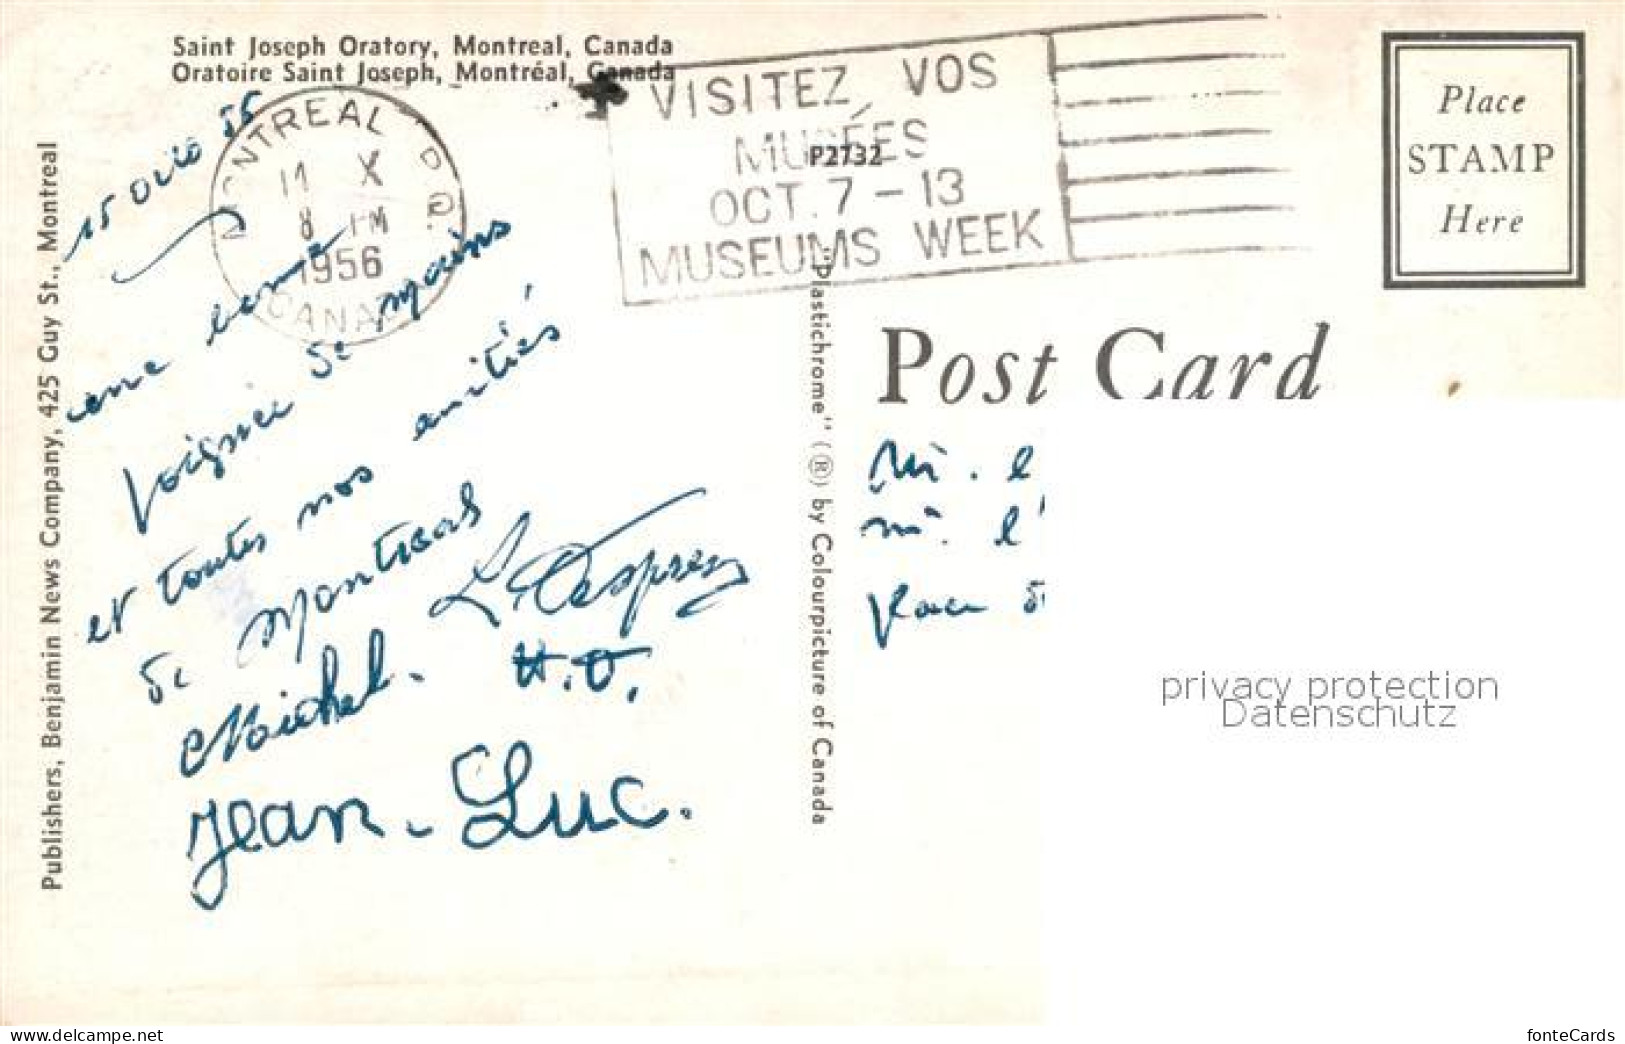 Saint Joseph Oratory, Montreal, Canada
Oratoire Saint Joseph, Montréal, Canada
MONTREAL P.Q.
11 X
8 PM
1956
CANADA
VISITEZ VOS
MUSÉES
OCT. 7 - 13
MUSEUMS WEEK
P2732
Place
STAMP
Here
Post Card
Publishers, Benjamin News Company, 425 Guy St., Montreal
"Plastichrome" (®) by Colourpicture of Canada
une bonne
Poignée de mains
et toutes nos amitiés
de Montreal
Michel.
Jean-Luc.
privacy protection
Datenschutz
www.delcampe.net
fonteCards